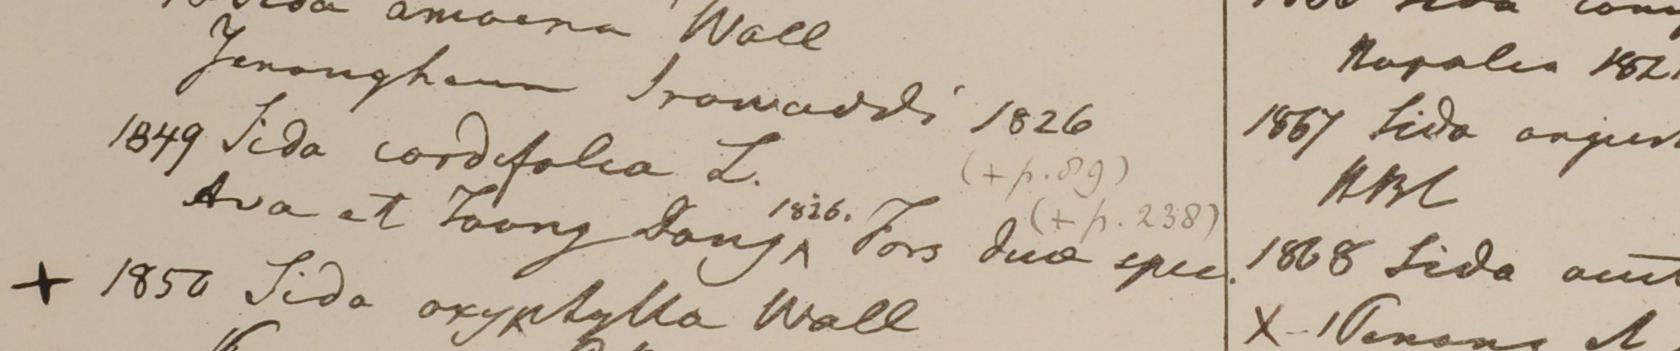 Sida amoena Wall
Yenangheun Irowaddi 1826
1849 Sida cordifolia L.
(+ p. 89)
Ava et Toong Dong 1826. Fors duæ spec.
(+ p. 238)
+ 1850 Sida oxyphylla Wall
Napalia 182
1867 Sida angus
HBC
1868 Sida
X - Penang et